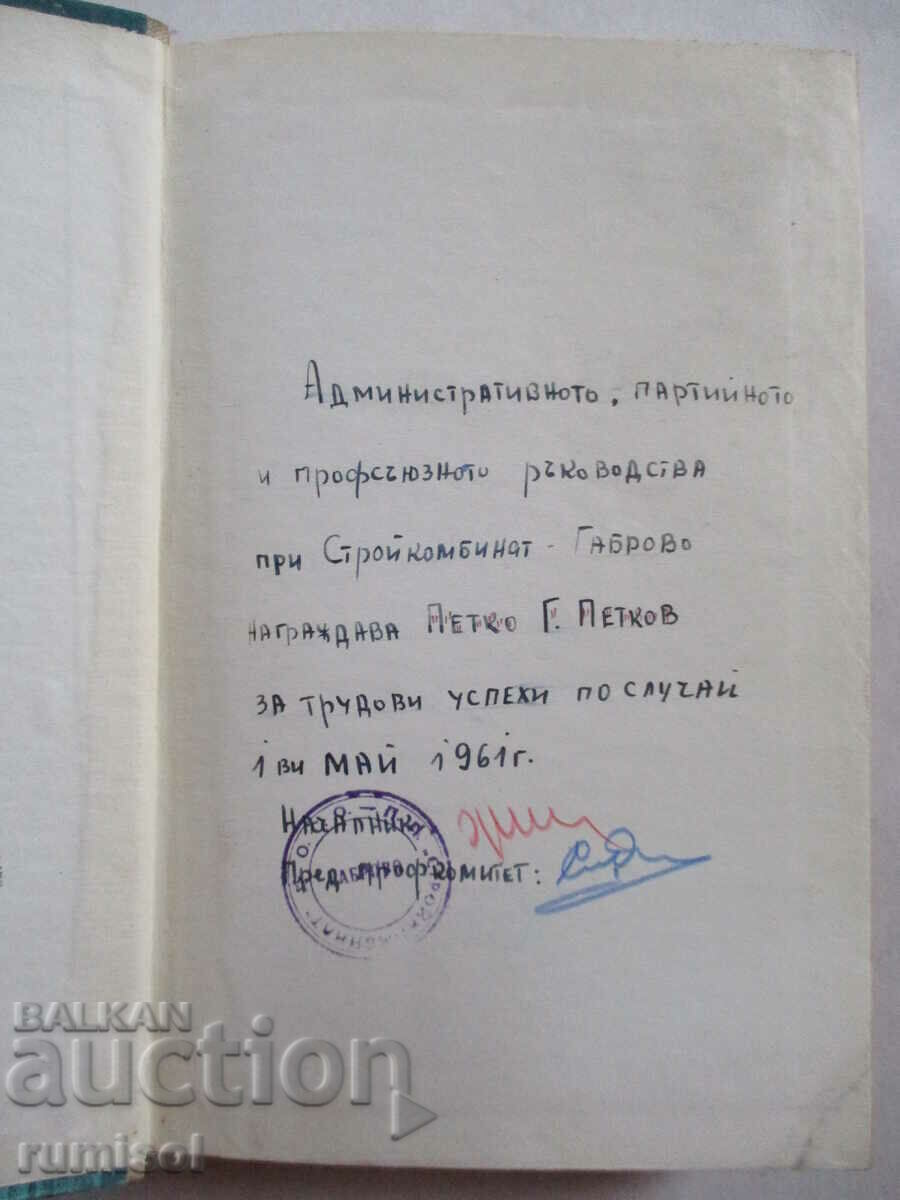 Административното, партийното
и профсъюзното ръководства
при Стройкомбинат - Габрово
награждава Петко Г. Петков
за трудови успехи по случай
1ви май 1961г.
Началник
Пред. профкомитет:
BALKAN
auction
rumisol